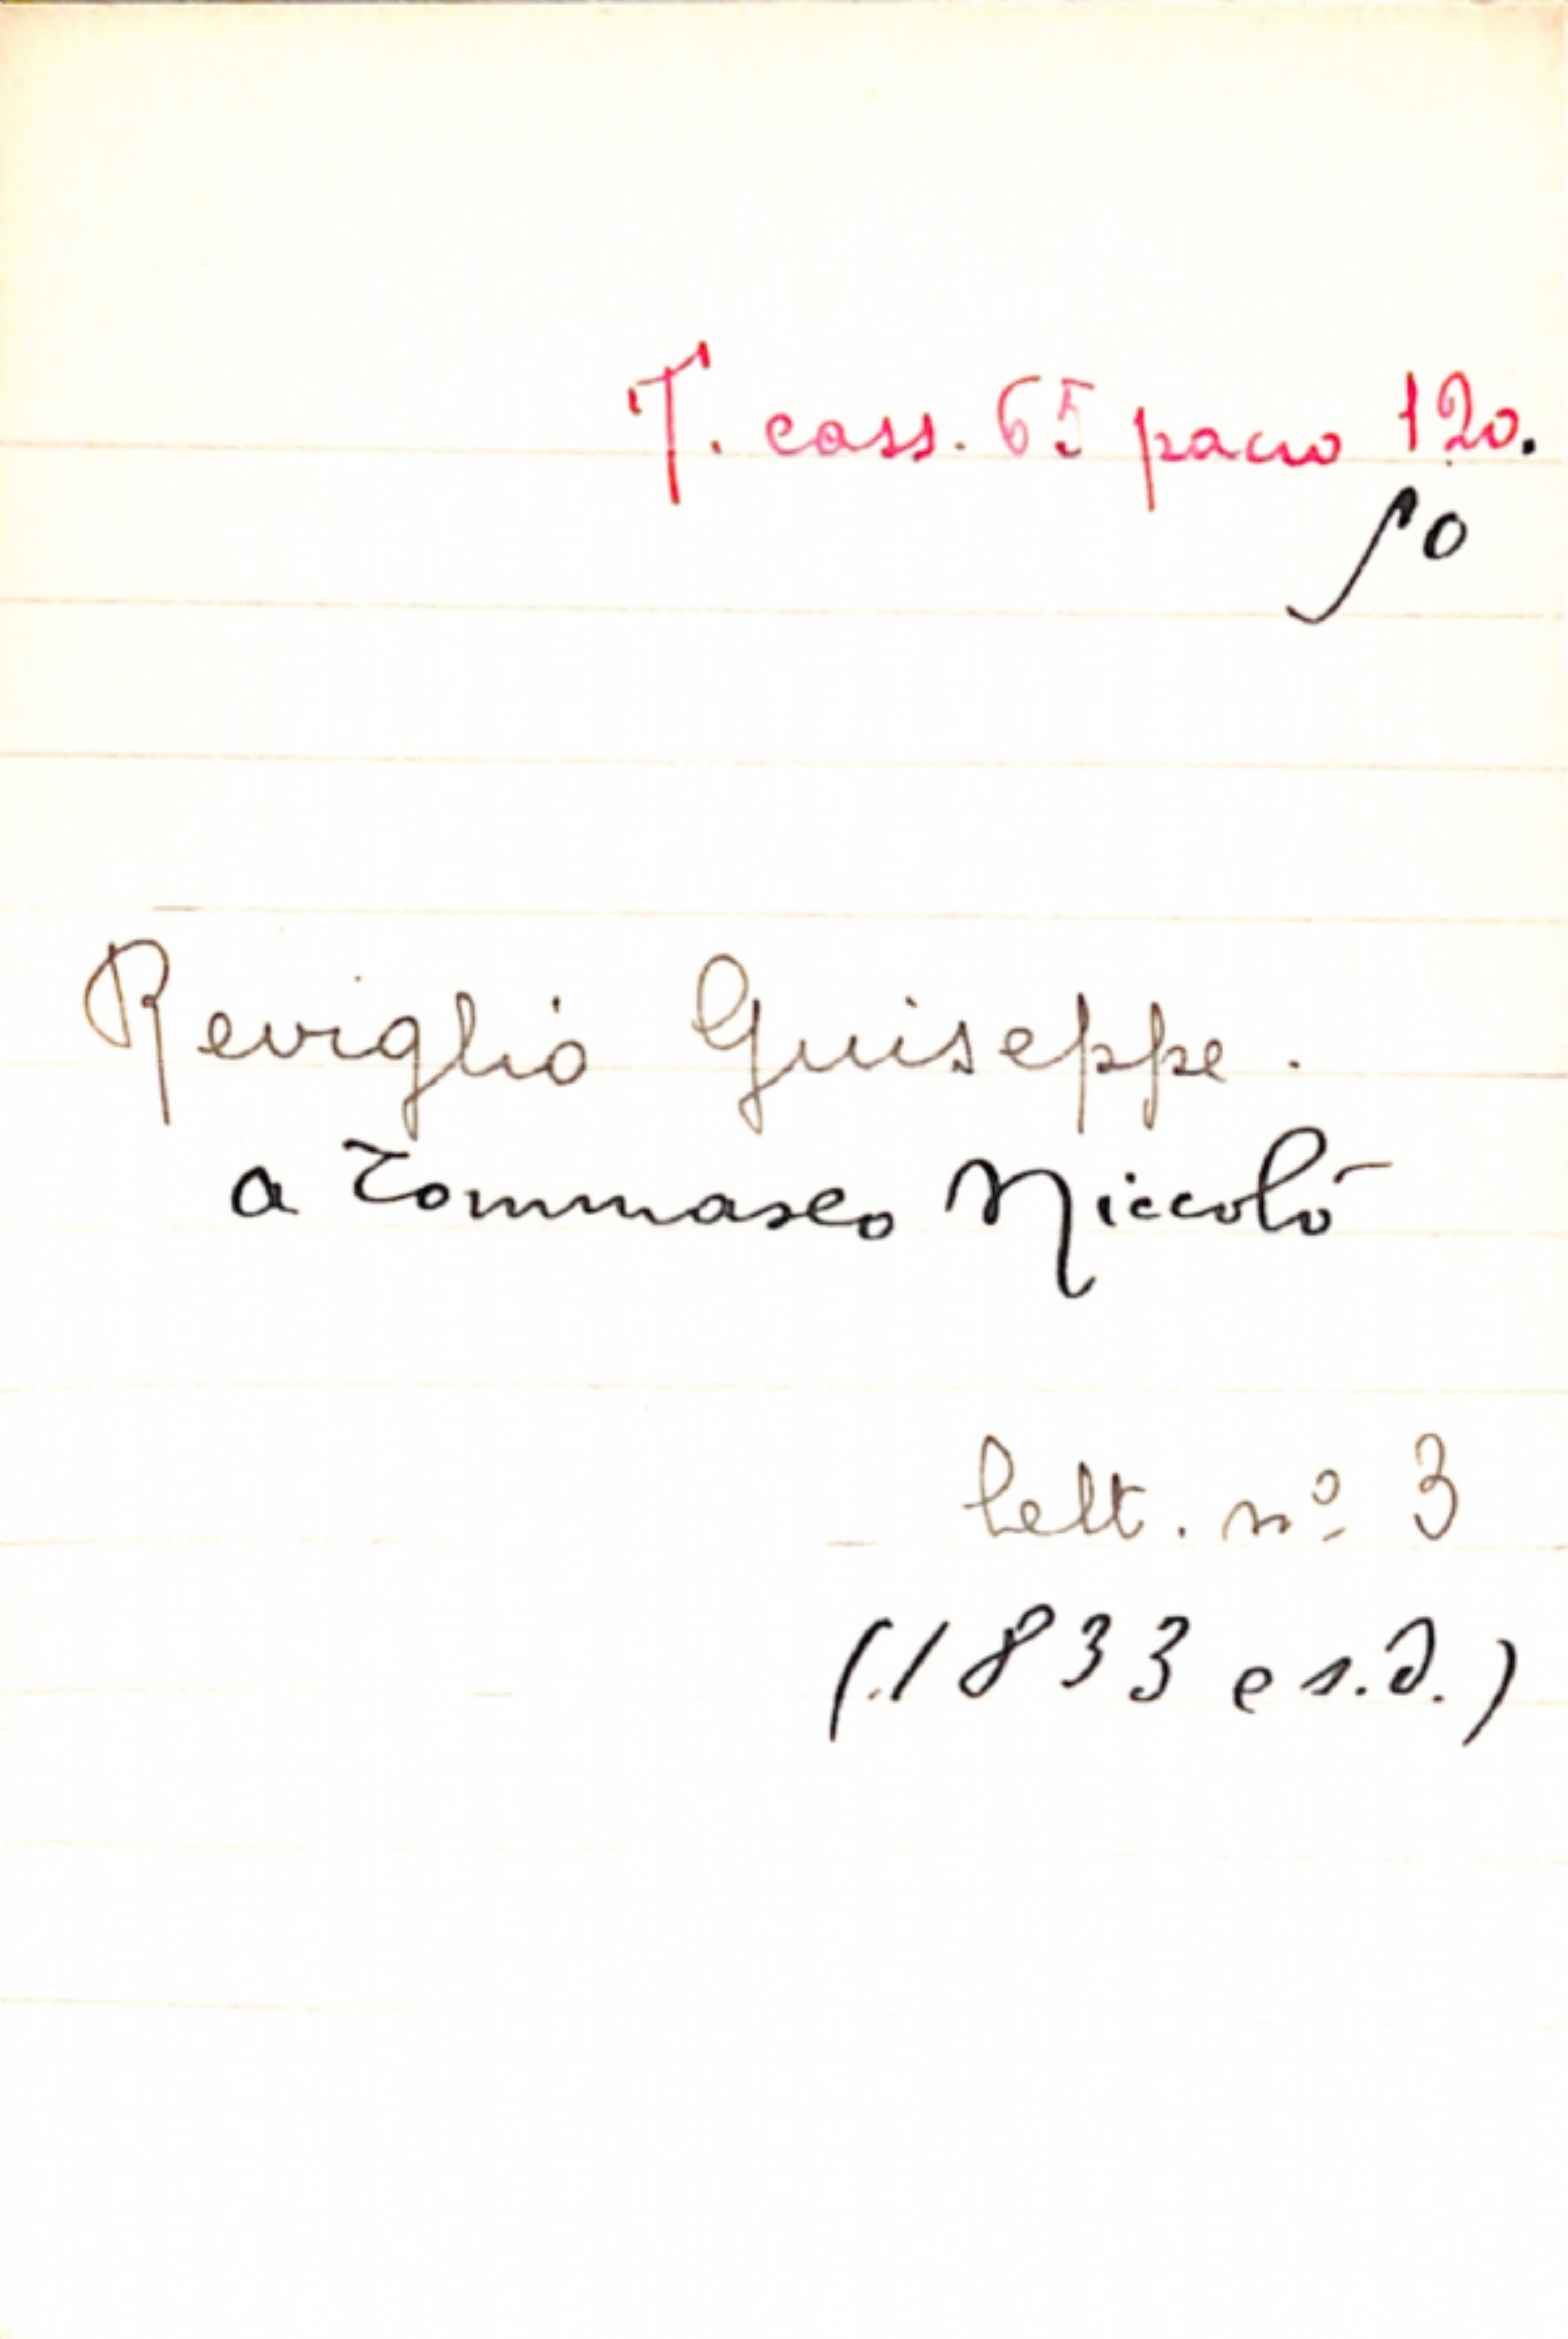 T. cass. 65 pacco 120.
10
Reviglio Giuseppe.
a Tommaseo Niccolò
lett. nº 3
(1833 e s.d.)